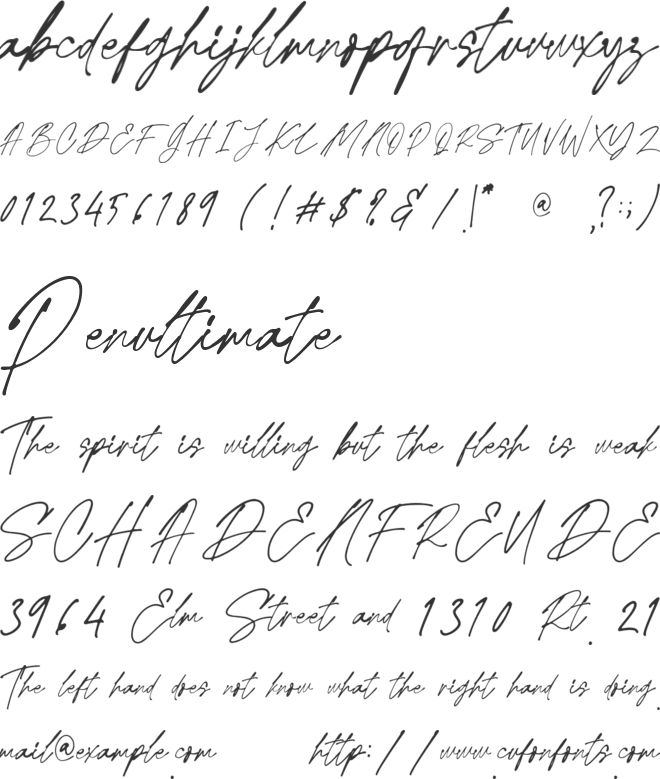 abcdefghijklmnopqrstuvwxyz
ABCDEFGHIJKLMNOPQRSTUVWXYZ
0123456789 (!#$%&/.|* @ ,?:;)
Penultimate
The spirit is willing but the flesh is weak
SCHADENFREUDE
3964 Elm Street and 1370 Rt. 21
The left hand does not know what the right hand is doing.
mail@example.com http://www.cufonfonts.com